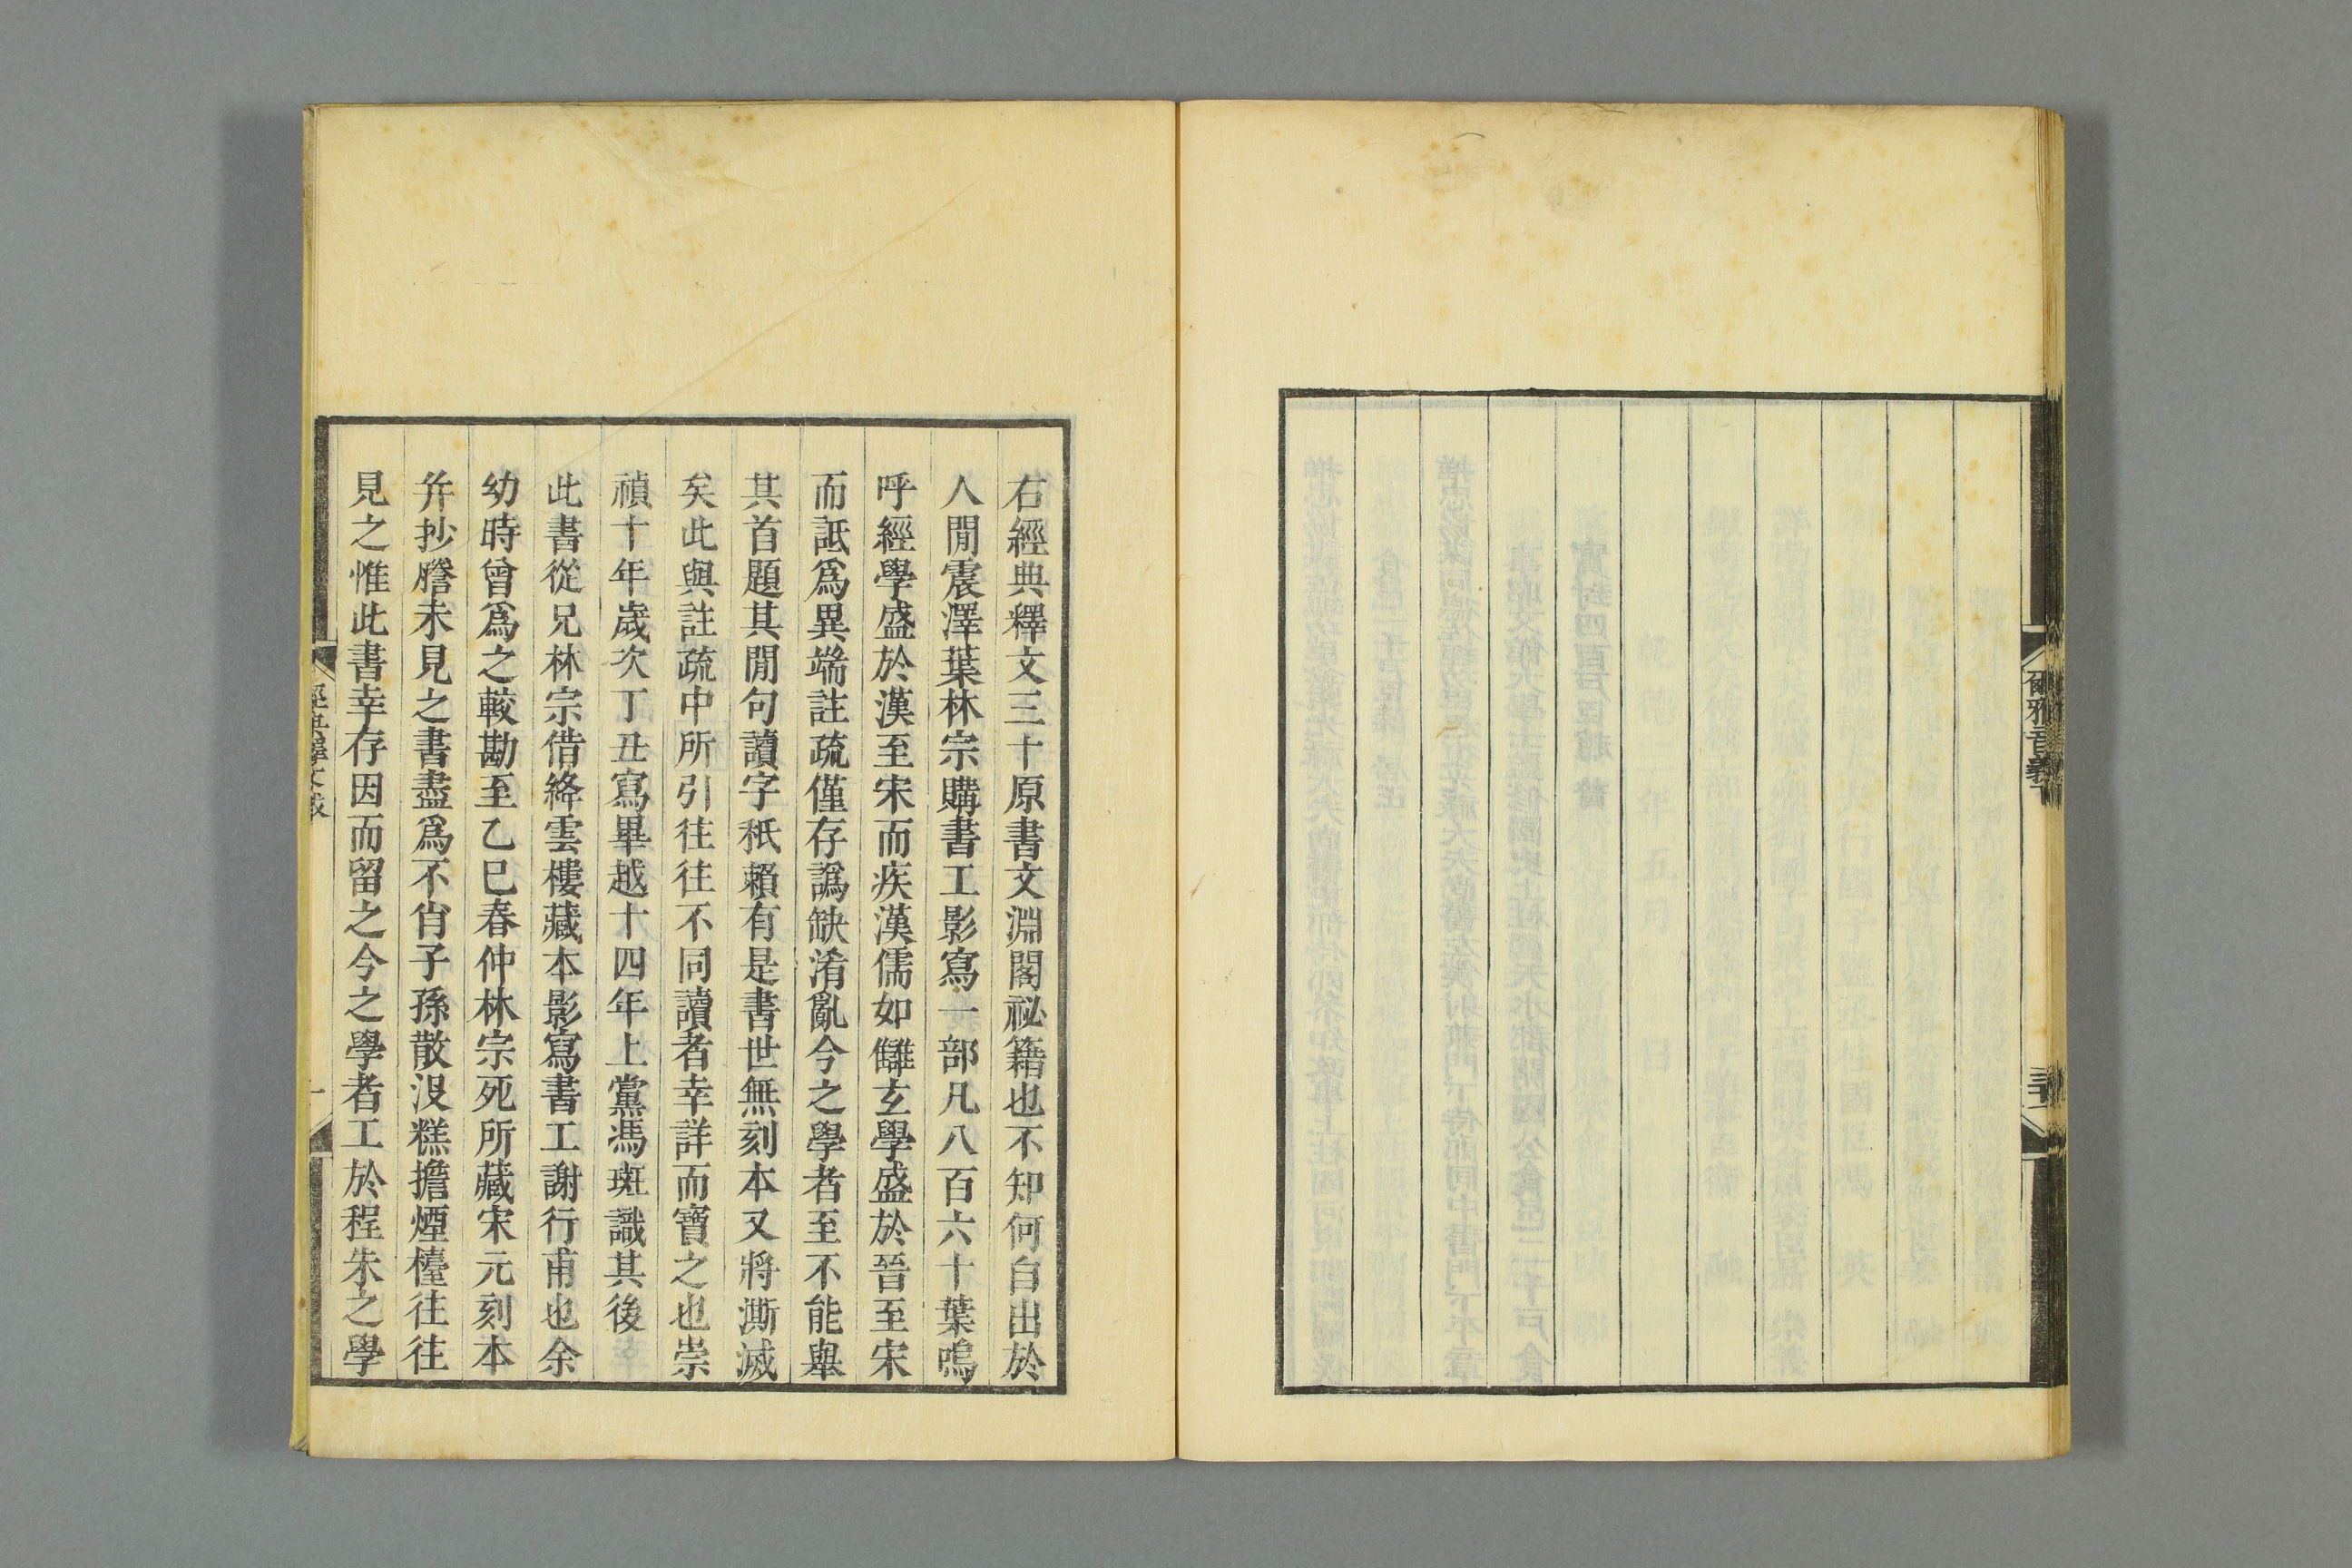 爾雅音義下
三十一
右經典釋文三十原書文淵閣祕籍也不知何自出於
人閒震澤葉林宗購書工影寫一部凡八百六十葉嗚
呼經學盛於漢至宋而疾漢儒如讎玄學盛於晉至宋
而詆爲異端註疏僅存譌缺淆亂今之學者至不能舉
其首題其閒句讀字秖賴有是書世無刻本又將漸滅
矣此與註疏中所引往往不同讀者幸詳而寶之也崇
禎十年歲次丁丑寫畢越十四年上黨馮班識其後
此書從兄林宗借絳雲樓藏本影寫書工謝行甫也余
幼時曾爲之較勘至乙巳春仲林宗死所藏宋元刻本
幷抄謄未見之書盡爲不肖子孫散沒糕擔煙檯往往
見之惟此書幸存因而留之今之學者工於程朱之學
經典釋文跋
一